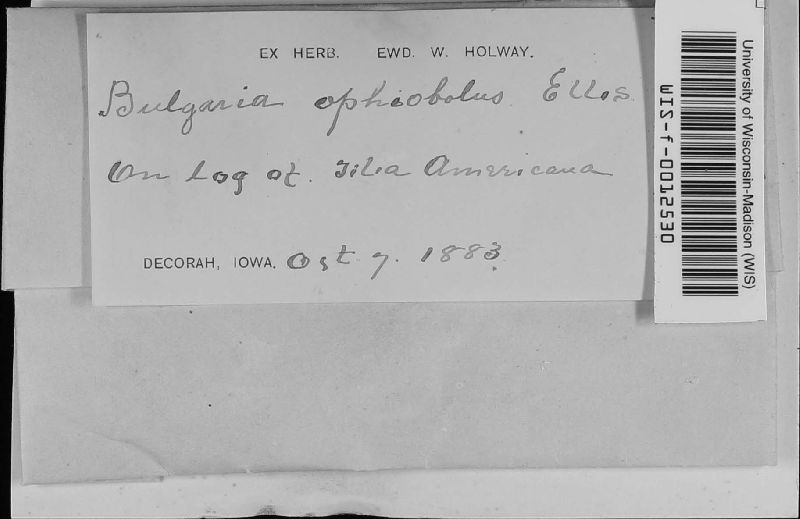 EX HERB. EWD. W. HOLWAY.
Bulgaria ophiobolus Ellis
On log of Tilia Americana
DECORAH, IOWA. Oct 7. 1883
University of Wisconsin-Madison (WIS)
WIS-f-0012530